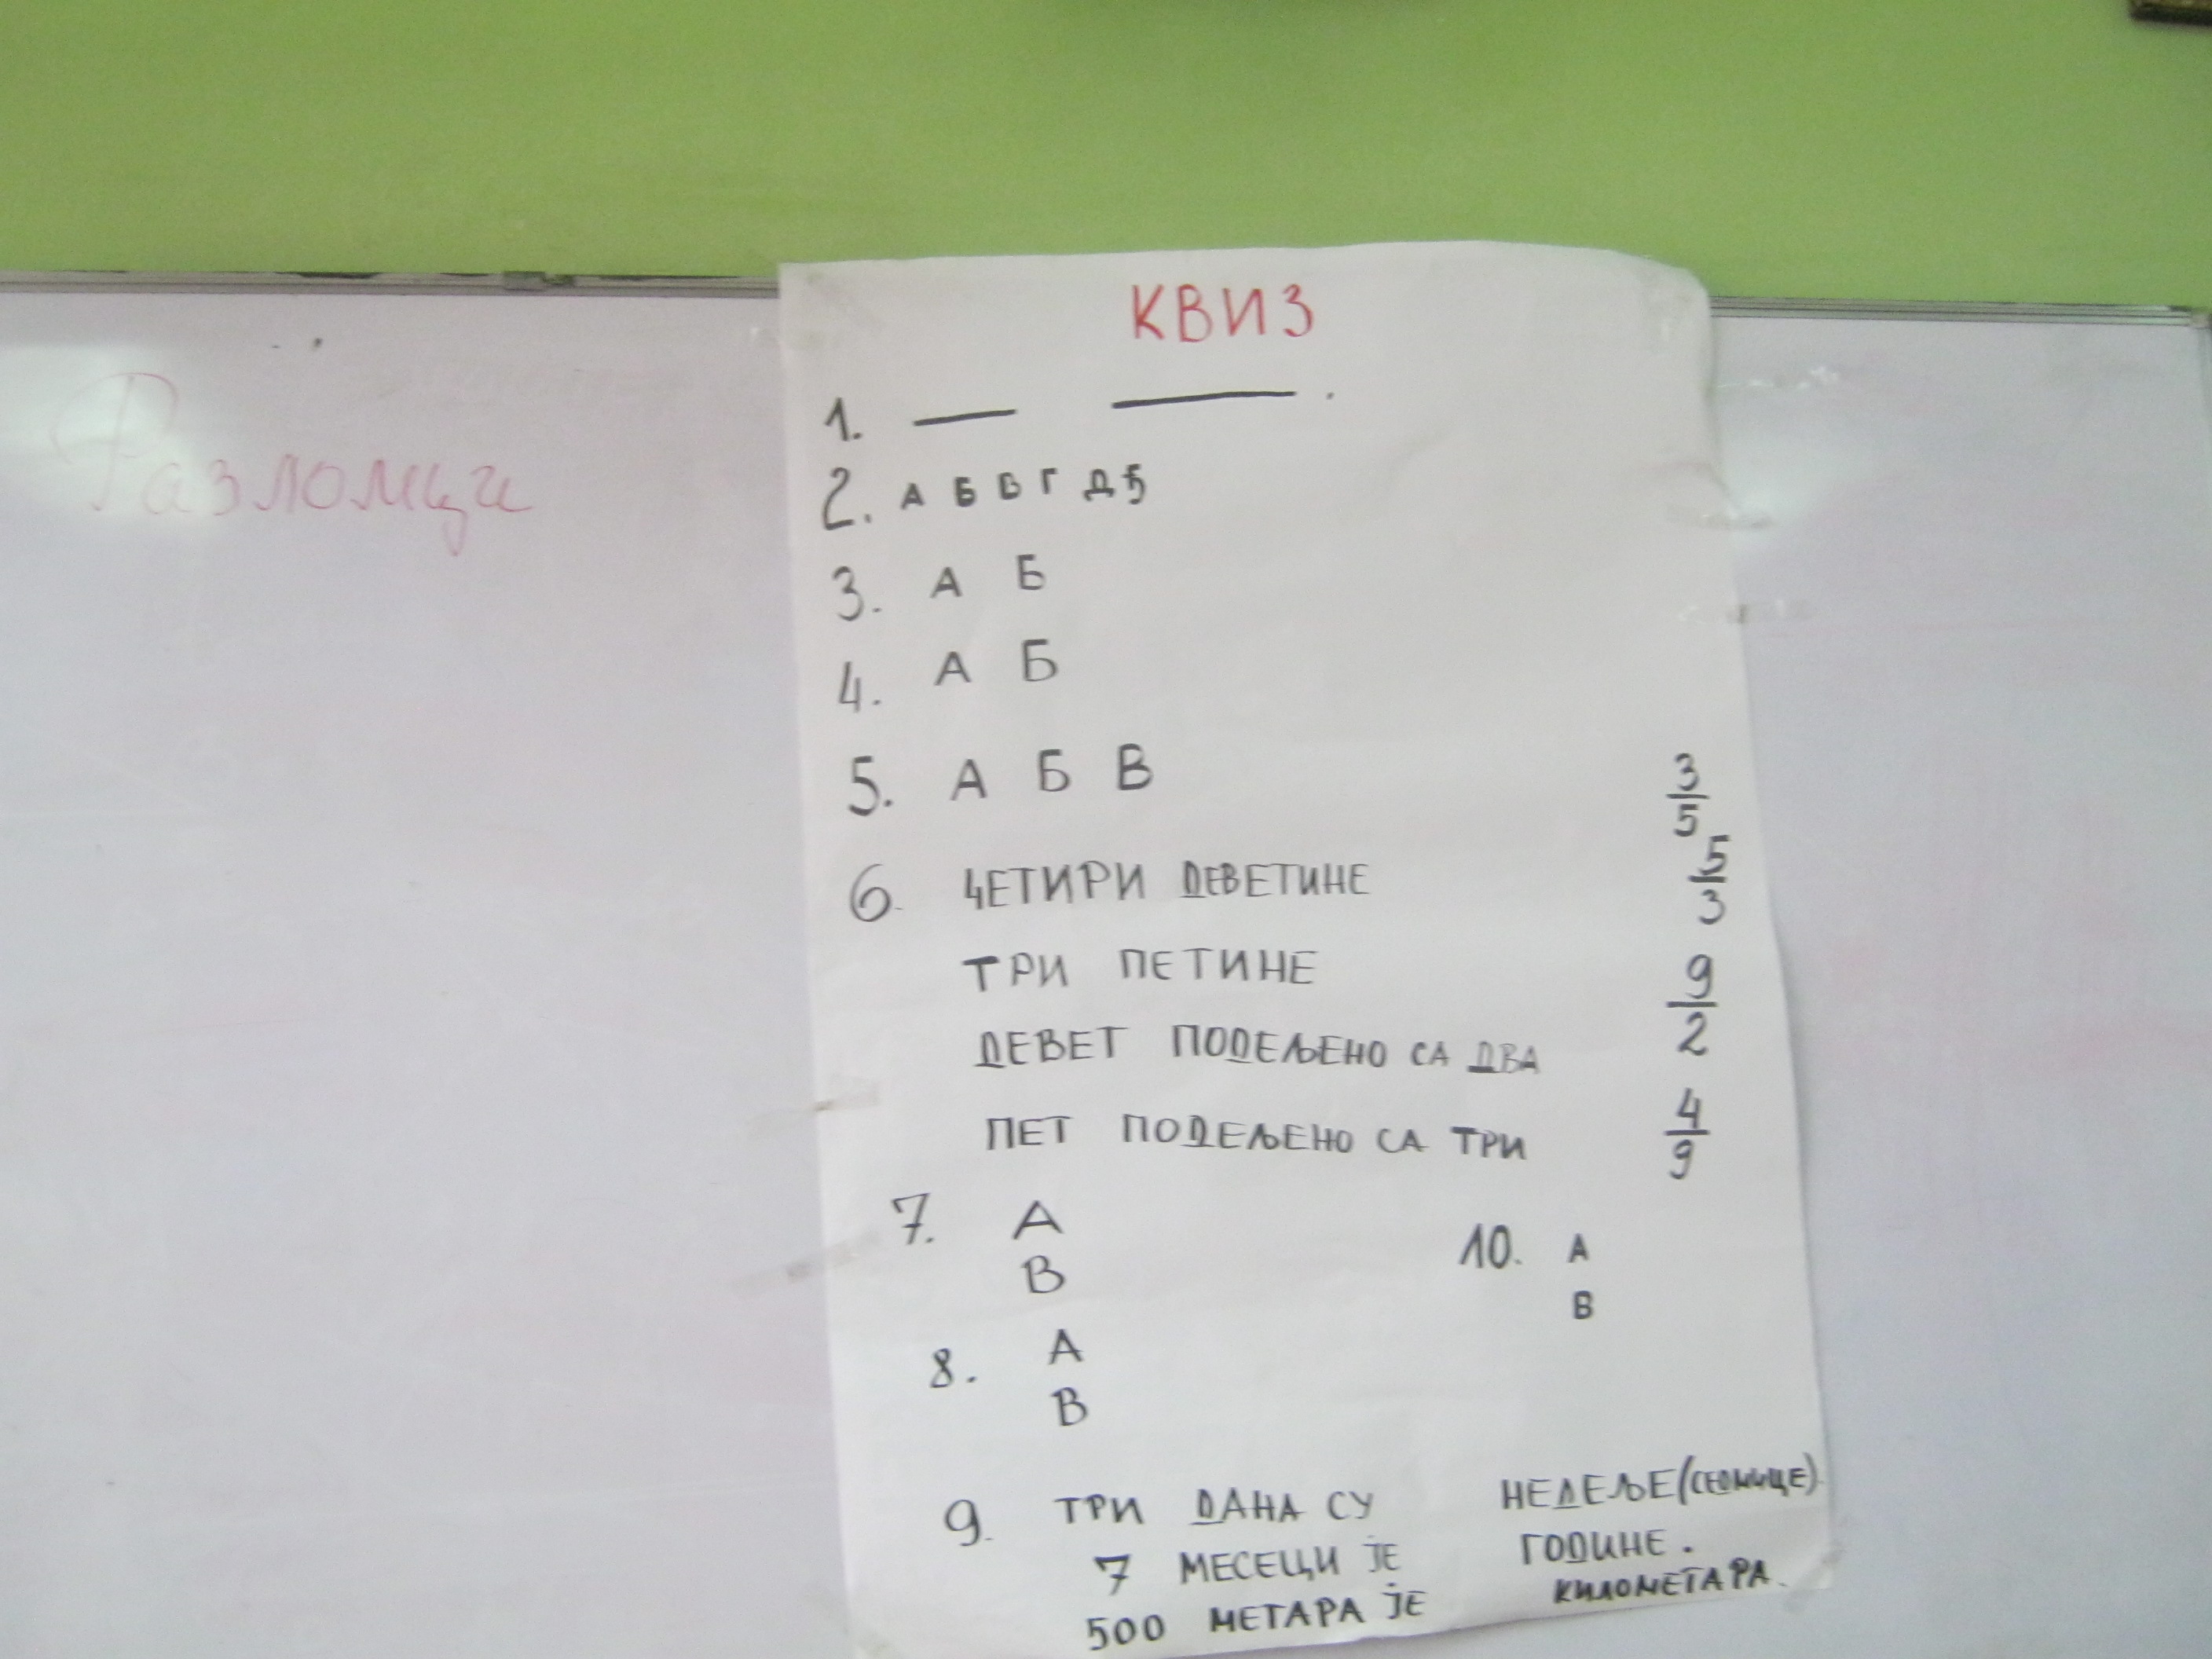 Разломци
КВИЗ
1. ___ ___ .
2. А Б В Г Д Ђ
3. А Б
4. А Б
5. А Б В
6. ЧЕТИРИ ДЕВЕТИНЕ 3/5
5/3
ТРИ ПЕТИНЕ
ДЕВЕТ ПОДЕЉЕНО СА ДВА 9/2
ПЕТ ПОДЕЉЕНО СА ТРИ 4/9
7. А
В
10. А
В
8. А
В
9. ТРИ ДАНА СУ НЕДЕЉЕ (СЕДМИЦЕ).
7 МЕСЕЦИ ЈЕ ГОДИНЕ.
500 МЕТАРА ЈЕ КИЛОМЕТАРА.